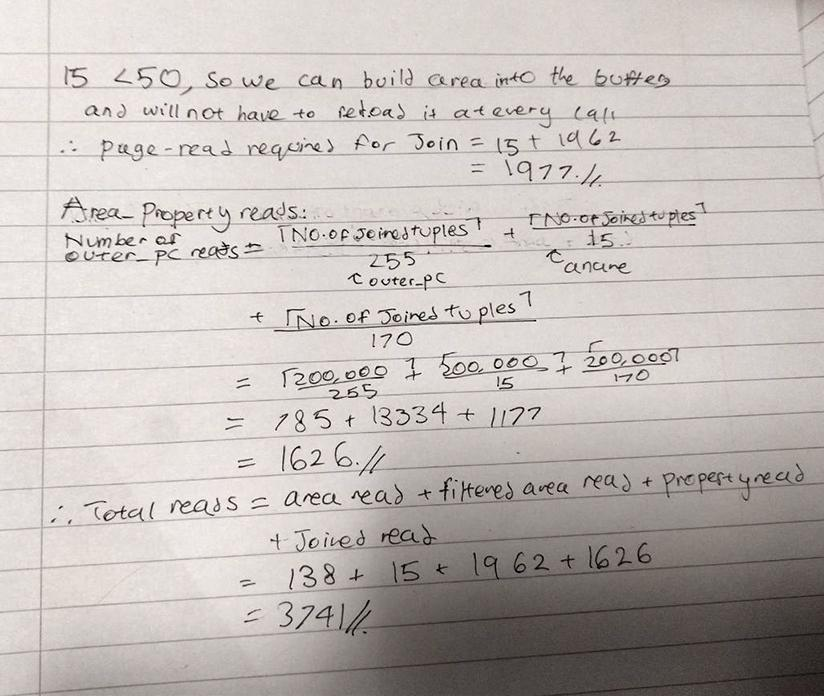 15 < 50, so we can build area into the buffers
and will not have to reload it at every call
∴ page-read required for Join = 15 + 1962
= 1977.//
Area_Property reads:
Number of outer_pc reads = ⌈No. of Joined tuples⌉ / 255 + ⌈No. of Joined tuples⌉ / 15
τ outer_pc τ
+ ⌈No. of Joined tuples⌉ / 170
= ⌈200,000 / 255⌉ + ⌈200,000 / 15⌉ + ⌈200,000⌉ / 170
= 785 + 13334 + 1177
= 1626.//
∴ Total reads = area read + filtered area read + property read
+ Joined read
= 138 + 15 + 1962 + 1626
= 3741//.